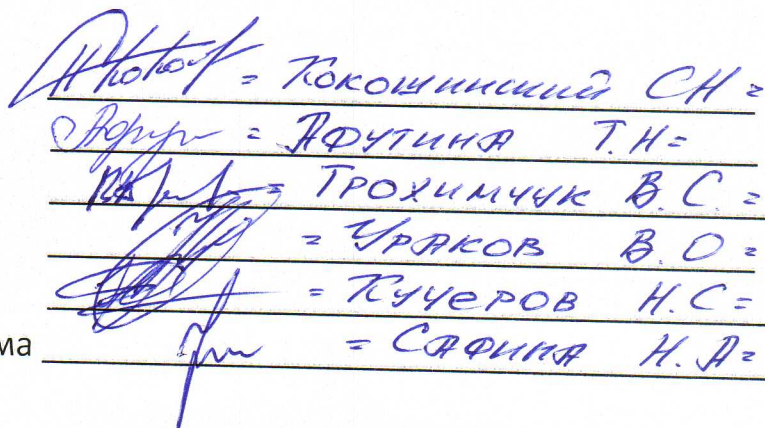 = Кокошинский СН =
= Афутина Т.Н =
= Трохимчук В.С. =
= Ураков В.О =
= Кучеров Н.С =
ма = Сафина Н.А =